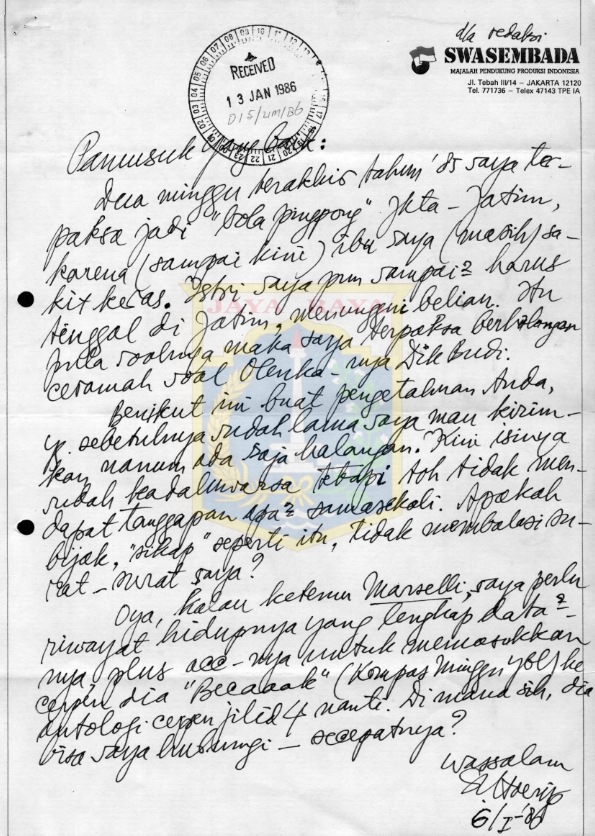 d/a redaksi
SWASEMBADA
MAJALAH PENDUKUNG PRODUKSI INDONESIA
Jl. Tebah III/14 – JAKARTA 12120
Tel. 771736 – Telex 47143 TPE IA
RECEIVED
13 JAN 1986
Pamusuk yang baik:
Dua minggu terakhir tahun '85 saya ter-
paksa jadi "bola pingpong" Jkta – Jatim,
karena (sampai kini) ibu saya (masih) sa-
kit keras. Istri saya pun sampai2 harus
tinggal di Jatim, menunggui belian. Itu
pula soalnya maka saya terpaksa berhalangan
ceramah soal Olenka-nya Dikbudi.
Berikut ini buat pengetahuan Anda,
yg. sebetulnya sudah lama saya mau kirim-
kan namun ada saja halangan. Kini isinya
sudah kadaluwarsa tetapi toh tidak men-
dapat tanggapan apa2 samasekali. Apakah
bijak, "sikap" seperti itu, tidak membalasi su-
rat-surat saya?
Oya, kalau ketemu Marselli, saya perlu
riwayat hidupnya yang lengkap data2-
nya plus acc-nya untuk memasukkan
cerpen dia "Becaaak" (Kompas Minggu ybl) ke
antologi cerpen jilid 4 nanti. Di mana sih, dia
bisa saya hubungi – secepatnya?
Wassalam
6/I-'86
JAYA RAYA